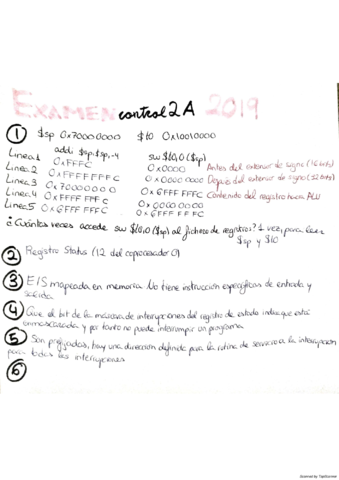 EXAMEN control 2A 2019
① $sp 0x70000000 $t0 0x10010000
addi $sp,$sp,-4 sw $t0,0($sp)
Linea 1 0xFFFC 0x0000 Antes del extensor de signo (16 bits)
Linea 2 0xFFFFFFFC 0x00000000 Después del extensor de signo (32 bits)
Linea 3 0x70000000 0x6FFFFFFC Contenido del registro hacia ALU
Linea 4 0xFFFFFFFC 0x00000000
Linea 5 0x6FFFFFFC 0x6FFFFFFC
¿Cuántas veces accede sw $t0,0($sp) al fichero de registros? 1 vez, para leer
$sp y $t0
② Registro Status (12 del coprocesador 0)
③ E/S mapeada en memoria. No tiene instrucción específicas de entrada y
salida
④ Que el bit de la máscara de interrupciones del registro de estado indica que está
enmascarada y por tanto no puede interrumpir un programa
⑤ Son prefijadas, hay una dirección definida para la rutina de servicio a la interrupción
para todas las interrupciones
⑥
Scanned by TapScanner